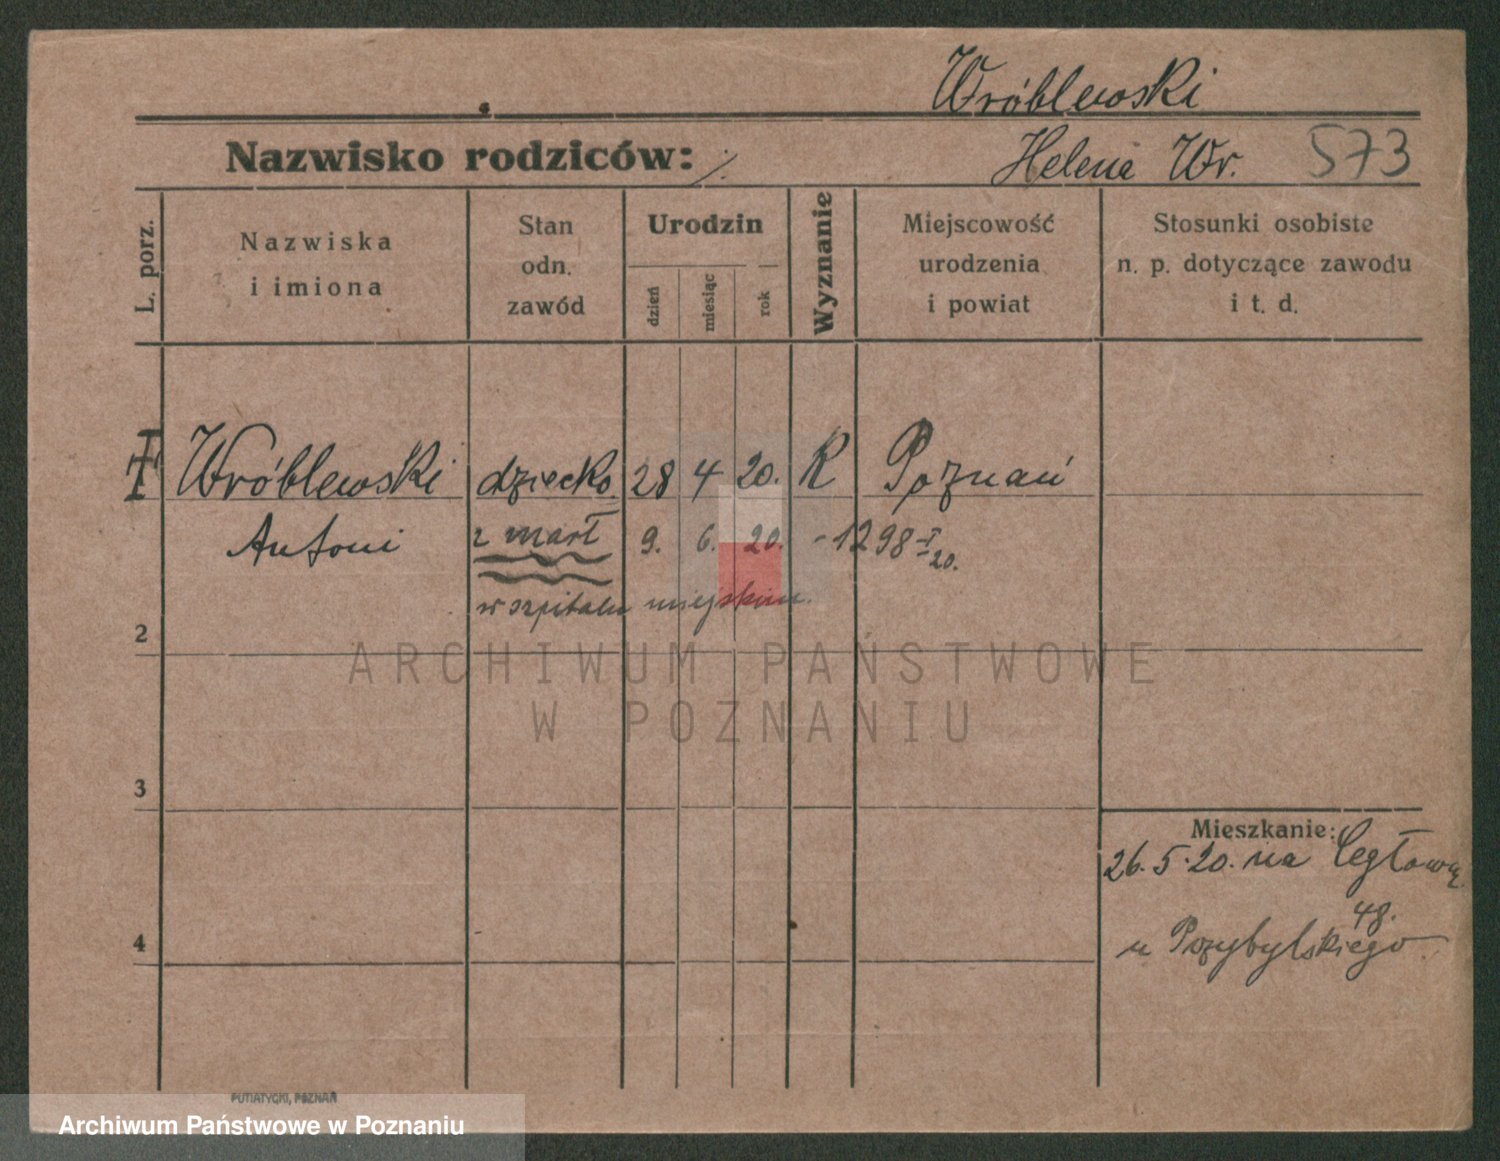 Wróblewski
Nazwisko rodziców: ./.
Helena Wr. 573
L. porz.
Nazwiska
i imiona
Stan
odn.
zawód
Urodzin
dzień
miesiąc
rok
Wyznanie
Miejscowość
urodzenia
i powiat
Stosunki osobiste
n. p. dotyczące zawodu
i t. d.
Wróblewski dziecko 28 4 20. K Poznań
Antoni zmarł 9. 6. 20. -1298 I/20.
w szpitalu miejskim.
2
3
4
Mieszkanie:
26.5.20. na Cegłową
48.
u Przybylskiego
PUTIATYCKI, POZNAŃ
ARCHIWUM PAŃSTWOWE
W POZNANIU
Archiwum Państwowe w Poznaniu